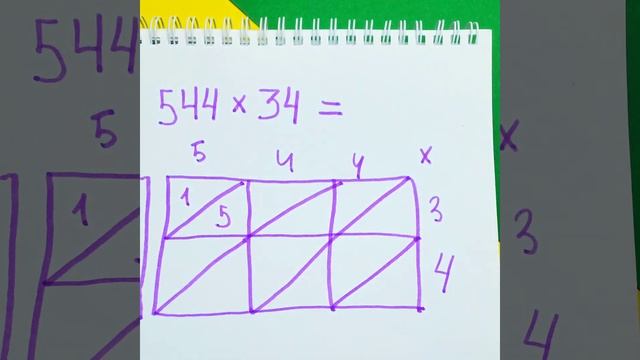 544 × 34 =
5 4 4 ×
1 5
3
4